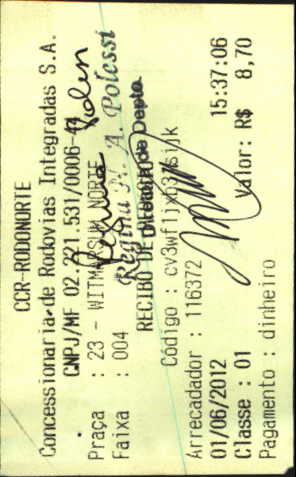 CCR-RODONORTE
Concessionaria de Rodovias Integradas S.A.
CNPJ/MF 02.221.531/0006-
Praça : 23 - WITMARSUM NORTE
Faixa : 004
Regina A. Polessi
RECIBO DE
de Depto
Código :
Arrecadador : 116372
01/06/2012 15:37:06
Classe : 01 Valor: R$ 8,70
Pagamento : dinheiro